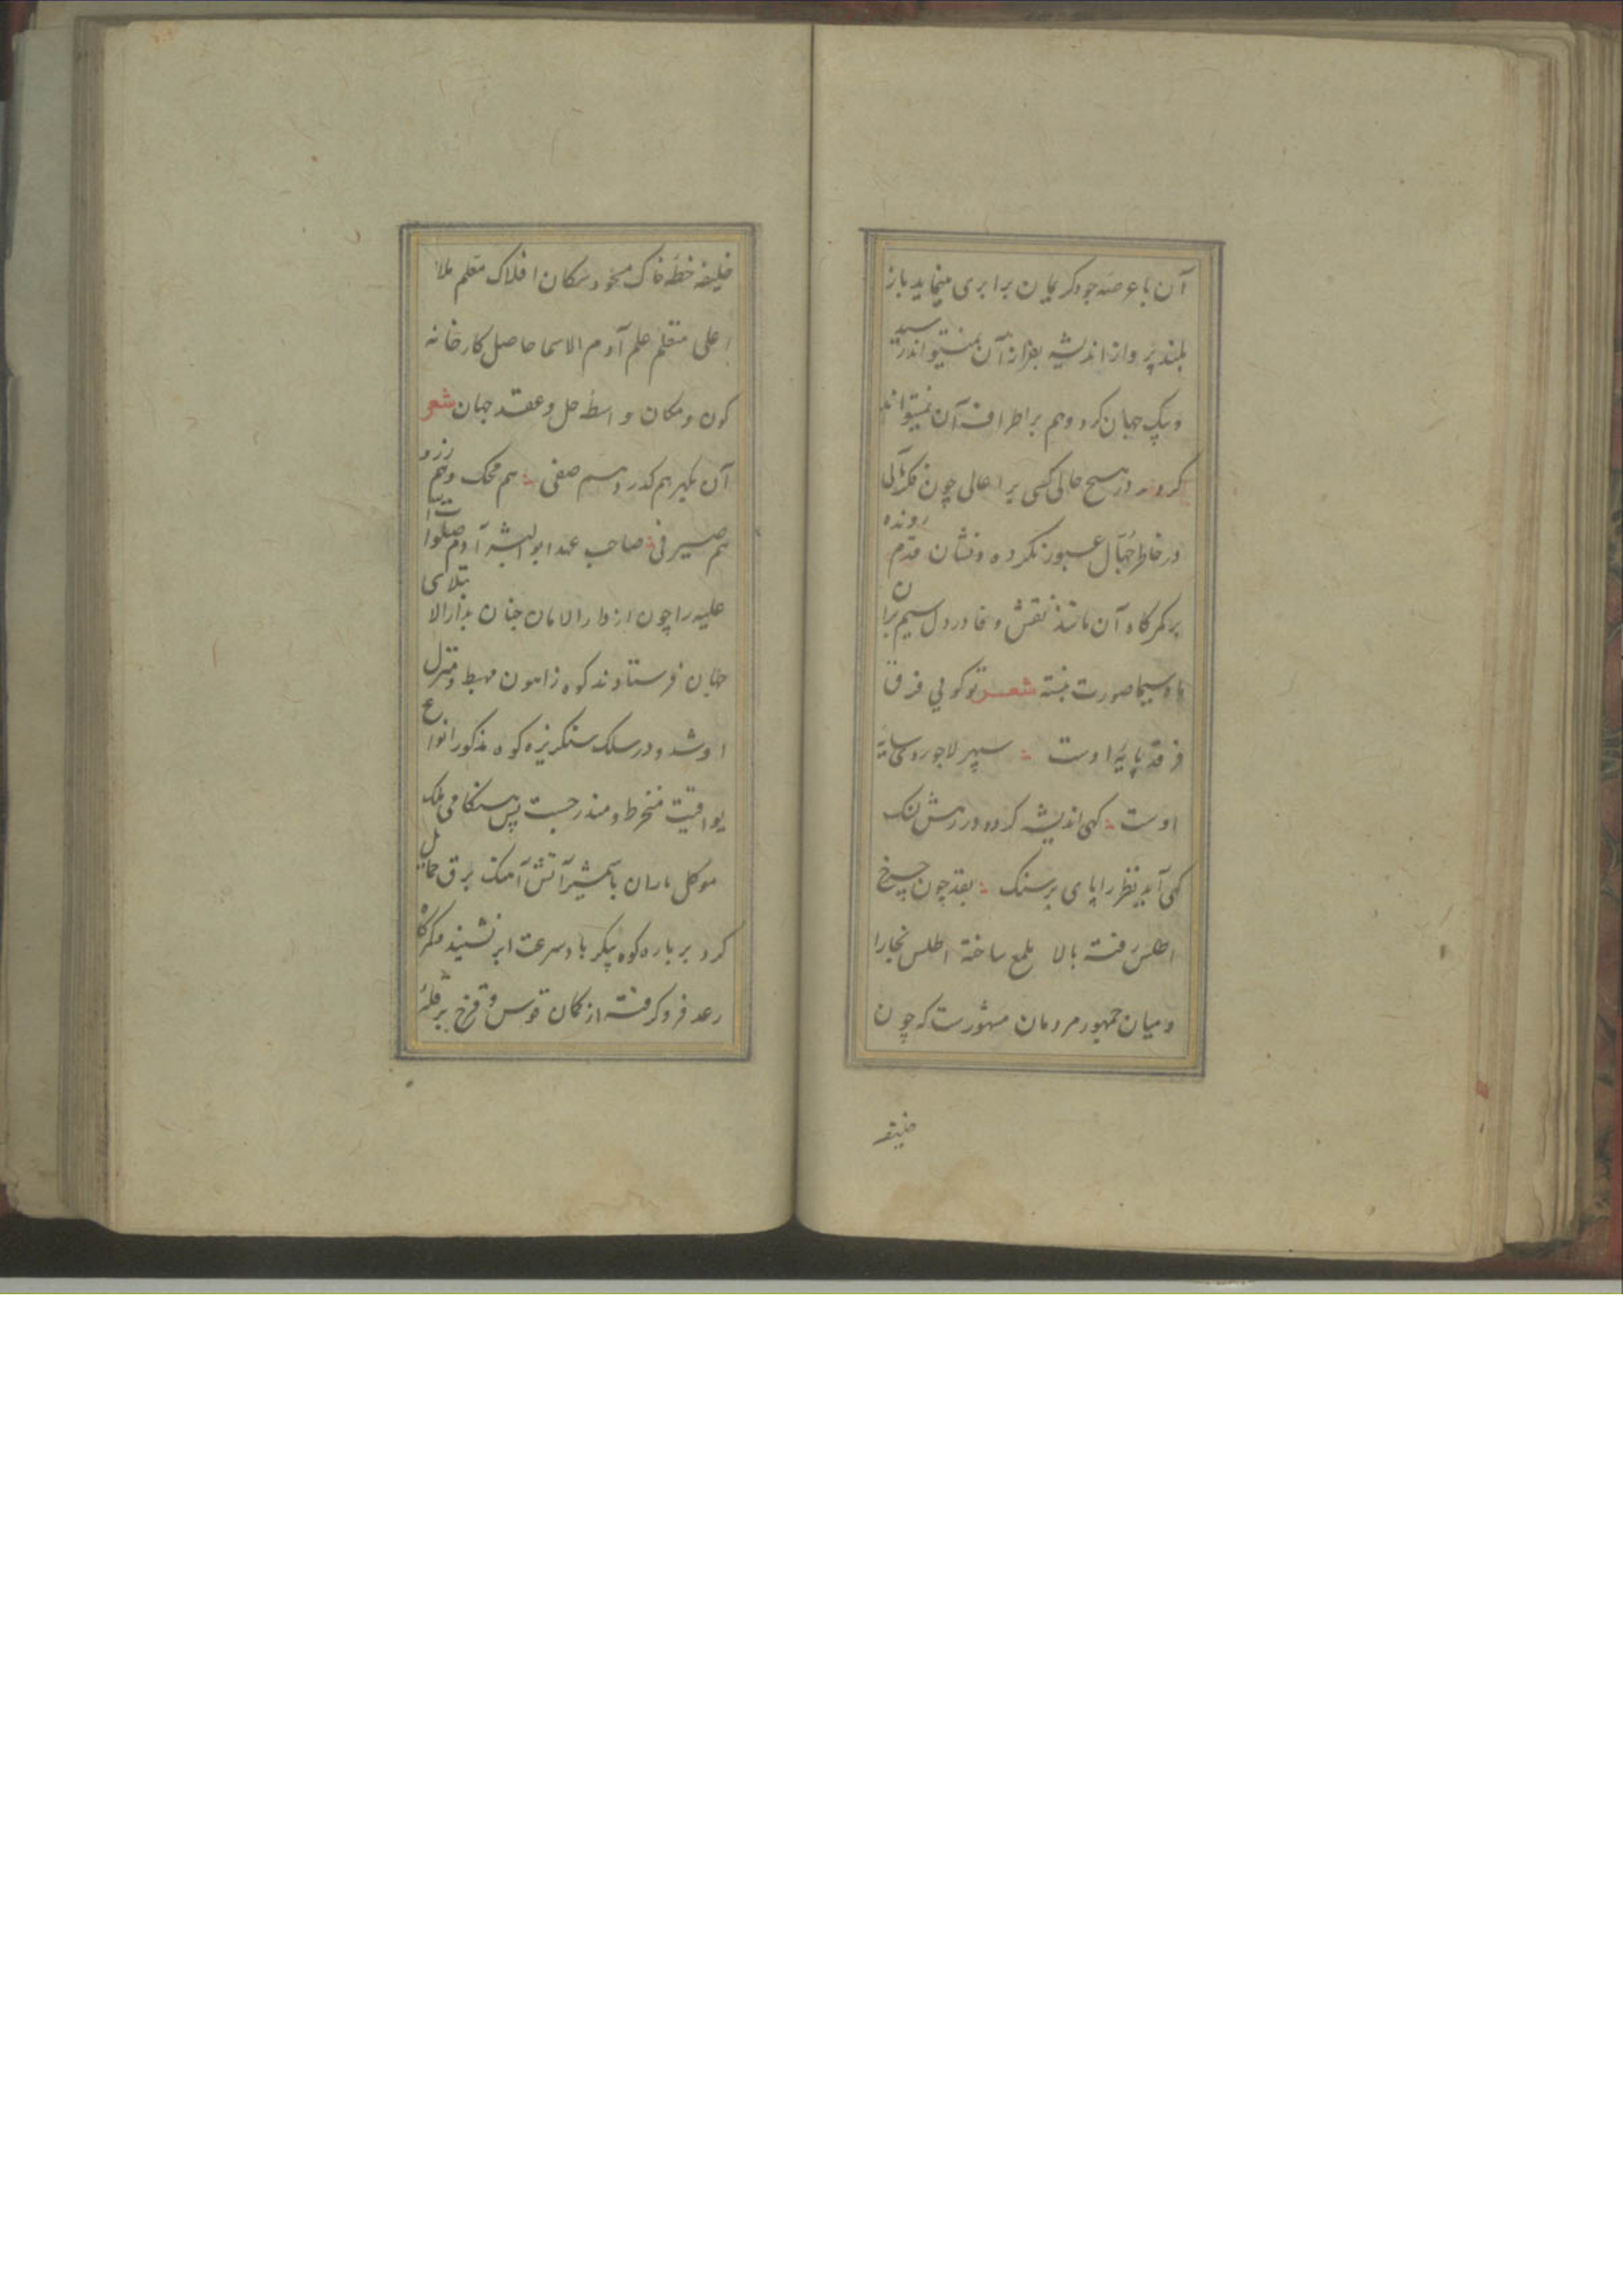 آن با عرصه جود کریمان برابری مینماید باز
بلند پرواز اندیشه بفراز آن نمیتواند رسید
و پیک جهان کرد وهم بر اطراف آن نمیتواند
کردید در هیچ حالی کسی بر اعالی چون فکر
در خاطر جبال عبور نکرده و نشان قدم رونده
بر کمرکاه آن مانند نقش وفا در دل سیم بران
ماه سیما صورت نبسته شعر تو کویی فرق
فرقد پایه اوست سپهر لاجوردی سایه
اوست کهی اندیشه کرده در رهش لنک
کهی آید نظر را پای بر سنک بقد چون چرخ
اطلس رفته بالا ملمع ساخته اطلس بخارا
و میان جمهور مردمان مشهورست که چون
خلیفه
خلیفه خطه خاک مسجود سکان افلاک معلم ملاء
اعلی متعلم علم آدم الاسما حاصل کارخانه
کون و مکان واسطه حل و عقد جهان شعر
آن بکیر هم کدر و هم صفی هم محک و هم زر و
هم صیرفی صاحب عهد ابوالبشر آدم صلوات
علیه را چون از دار الامان جنان بدار الابتلای
جهان فرستادند کوه زاهون مهبط و منزل
او شد و در سلک سنکریزه کوه مذکور انواع
یواقیت منخرط و مندرجست پس هنکامی ملک
موکل باران با شمشیر آتش آهنک برق حمایل
کرد بر باره کوه پیکر باد سرعت ابر نشیند و کمرکاه
رعد فرو کرفته از کمان قوس و قزح بر قله